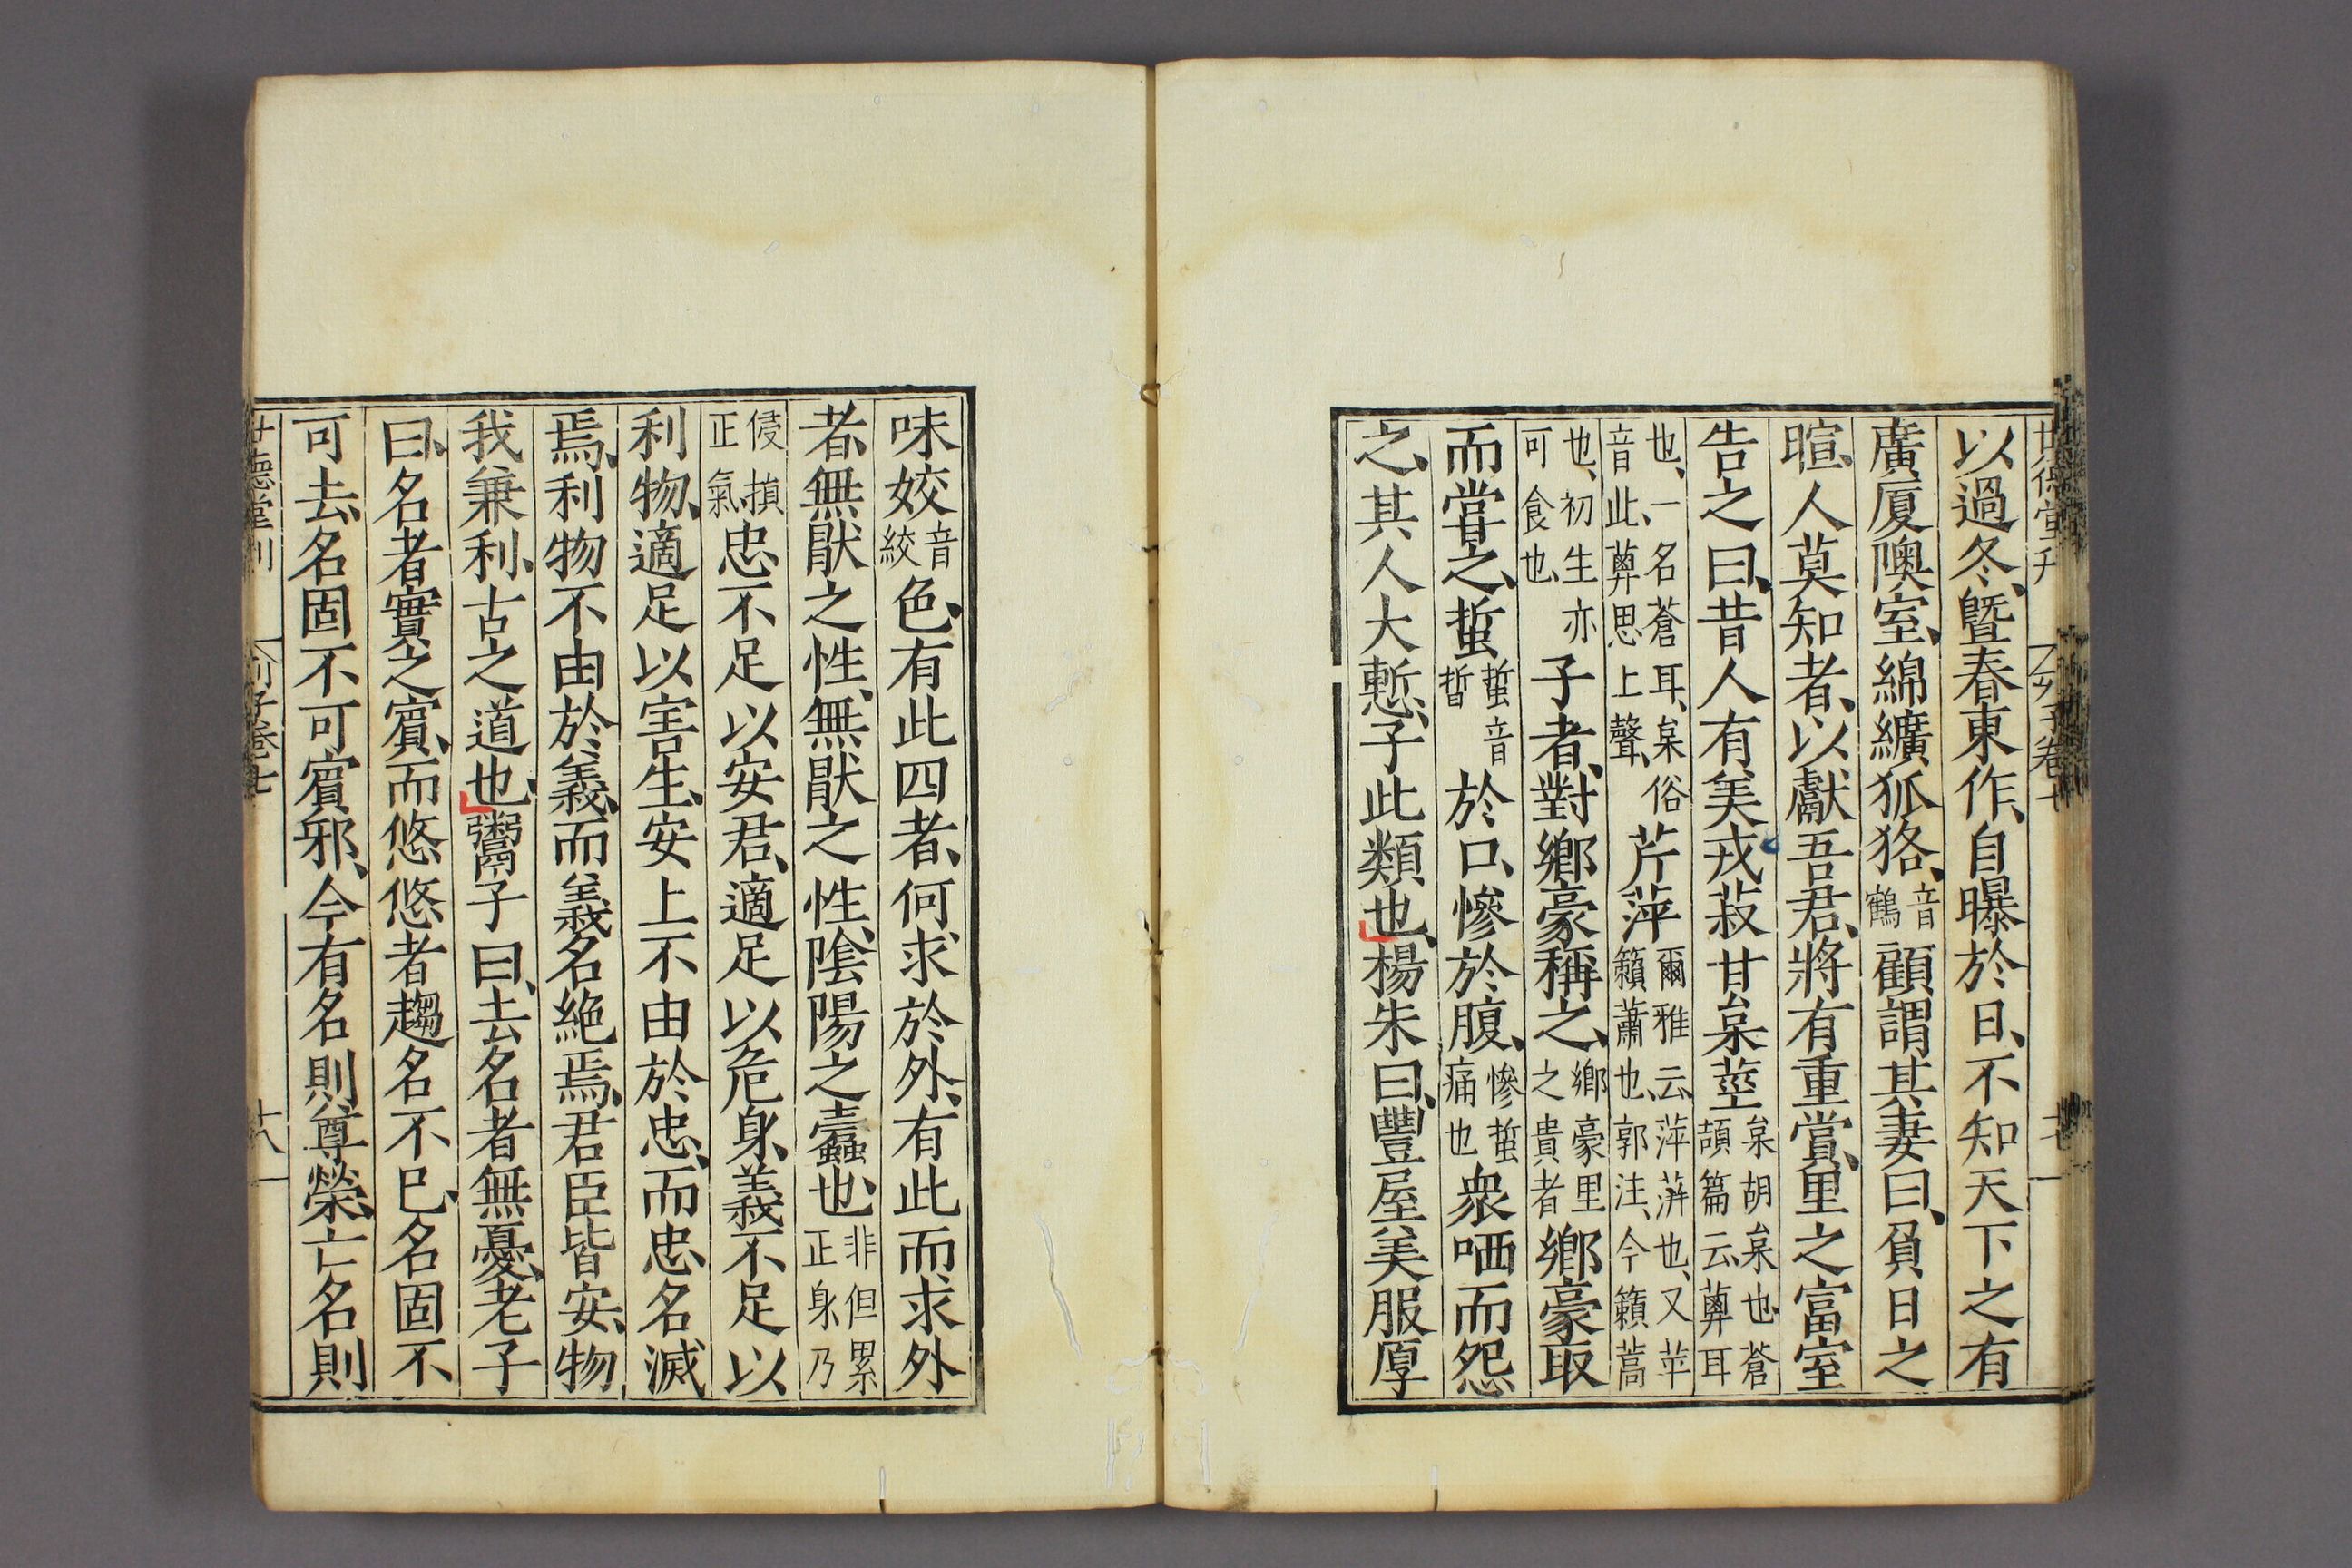 以過冬、暨春東作、自曝於日、不知天下之有
廣廈隩室、綿纊狐狢、音鶴顧謂其妻曰、負日之
暄、人莫知者、以獻吾君、將有重賞、里之富室
告之曰、昔人有美戎菽甘枲莖枲胡枲也、蒼頡篇云、䔒耳
也、一名蒼耳、枲俗音此、䔒思上聲、芹萍爾雅云、萍蓱也、又苹籟蕭也、郭注、今籟蒿
也、初生亦可食也、子者、對鄉豪稱之、鄉豪里之貴者鄉豪取
而嘗之、蜇蜇音晢於口、慘於腹、慘蜇痛也衆哂而怨
之、其人大慙、子此類也、楊朱曰、豐屋美服厚
味姣音絞色、有此四者、何求於外、有此而求外
者、無猒之性、無猒之性、陰陽之蠹也、非但累正身、乃
侵損正氣忠不足以安君、適足以危身、義不足以
利物、適足以害生、安上不由於忠、而忠名滅
焉、利物不由於義、而義名絶焉、君臣皆安、物
我兼利、古之道也、鬻子曰、去名者無憂、老子
曰、名者實之賓、而悠悠者趨名不已、名固不
可去、名固不可賓邪、今有名則尊榮、亡名則
世德堂刊 列子卷七 十八